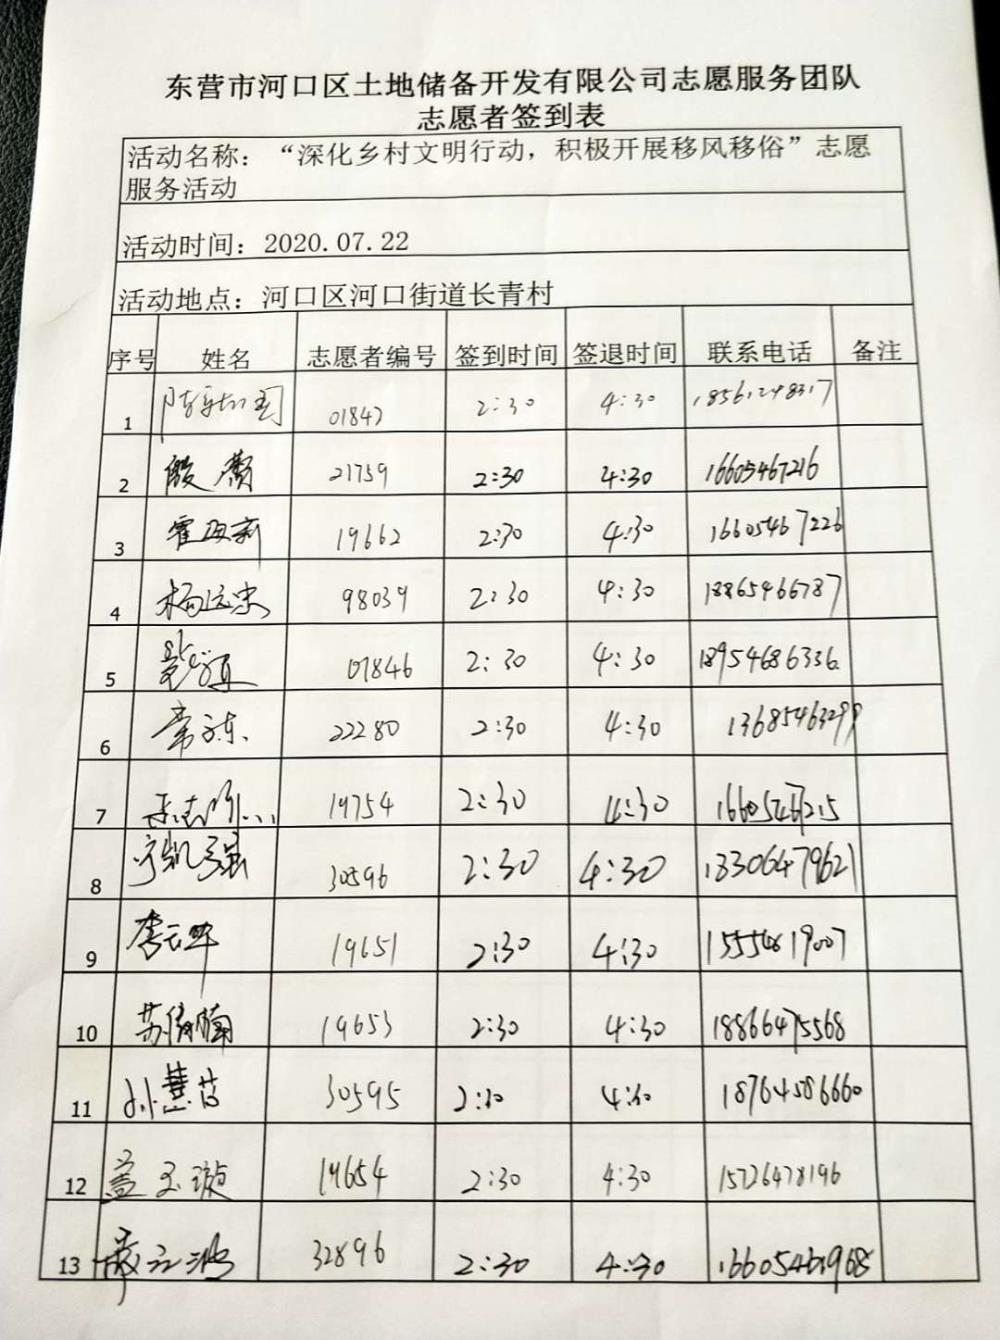 东营市河口区土地储备开发有限公司志愿服务团队
志愿者签到表
活动名称：“深化乡村文明行动，积极开展移风移俗”志愿
服务活动
活动时间：2020.07.22
活动地点：河口区河口街道长青村
序号 姓名 志愿者编号 签到时间 签退时间 联系电话 备注
1 01847 2:30 4:30 18561248317
2 殷 21759 2:30 4:30 16605467216
3 霍 19662 2:30 4:30 16605467226
4 杨远忠 98039 2:30 4:30 18865466787
5 01846 2:30 4:30 18954686336
6 常 22280 2:30 4:30 13685463299
7 19754 2:30 4:30 16605467215
8 宁凯强 30596 2:30 4:30 13306479621
9 李 19651 2:30 4:30
10 苏倩楠 19653 2:30 4:30 18866475568
11 孙慧 30595 2:30 4:30 18764586660
12 盖玉璇 19654 2:30 4:30 15726478196
13 32896 2:30 4:30